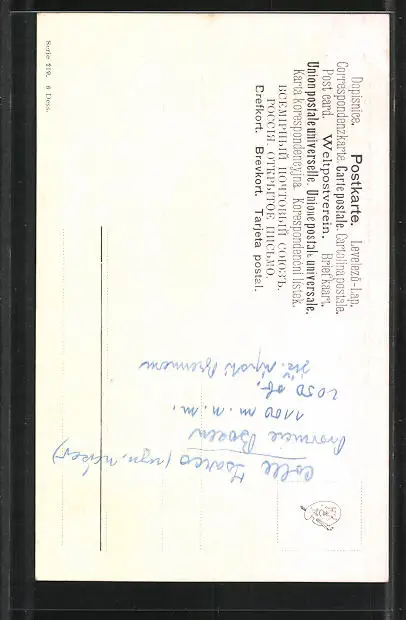 Dopisnice. Postkarte. Levelező-Lap.
Correspondenzkarte. Carte postale. Cartolina postale.
Post card. Weltpostverein. Briefkaart.
Union postale universelle. Unione postale universale.
Karta korespondencyjna. Korespondenční lístek.
ВСЕМІРНЫЙ ПОЧТОВЫЙ СОЮЗЪ.
РОССІЯ. ОТКРЫТОЕ ПИСЬМО.
Brefkort. Brevkort. Tarjeta postal.
Colle Isarco
Provincie Bozen
1100 m. n. m.
2050 ob.
Brennem
Serie 219. 6 Dess.